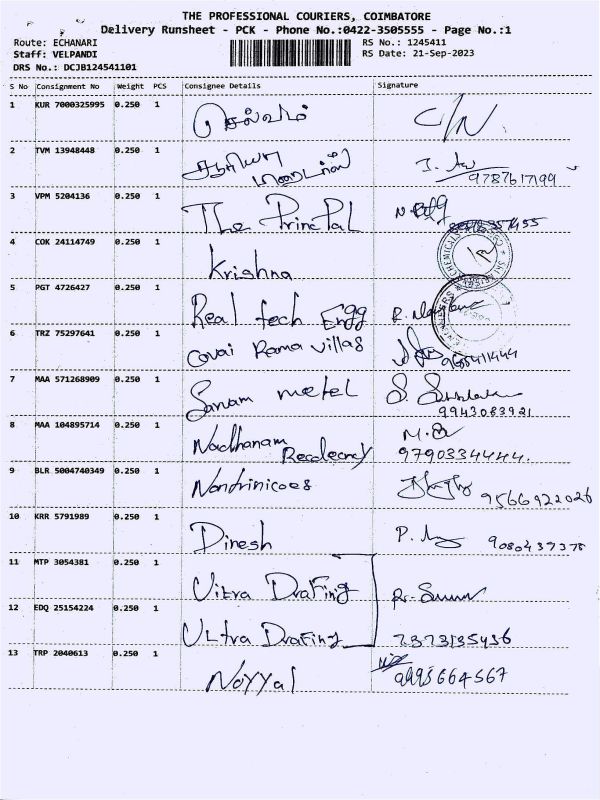 THE PROFESSIONAL COURIERS, COIMBATORE
Delivery Runsheet - PCK - Phone No.:0422-3505555 - Page No.:1
Route: ECHANARI
RS No.: 1245411
Staff: VELPANDI
RS Date: 21-Sep-2023
DRS No.: DCJB124541101
S No Consignment No Weight PCS Consignee Details Signature
1 KUR 7000325995 0.250 1 செல்வம்
2 TVM 13948448 0.250 1
9787617199
3 VPM 5204136 0.250 1 The PrinciPal
4 COK 24114749 0.250 1 Krishna
5 PGT 4726427 0.250 1 Real tech Engg
6 TRZ 75297641 0.250 1 Covai Rama villas
7 MAA 571268909 0.250 1 Sanam metel
9943083921
8 MAA 104895714 0.250 1 Nadhanam
9790334444.
9 BLR 5004740349 0.250 1
9566922026
10 KRR 5791989 0.250 1 Dinesh
11 MTP 3054381 0.250 1 Ultra DraFing
12 EDQ 25154224 0.250 1 ULtra DraFing 7373135456
13 TRP 2040613 0.250 1 NoyyaL 9995664567